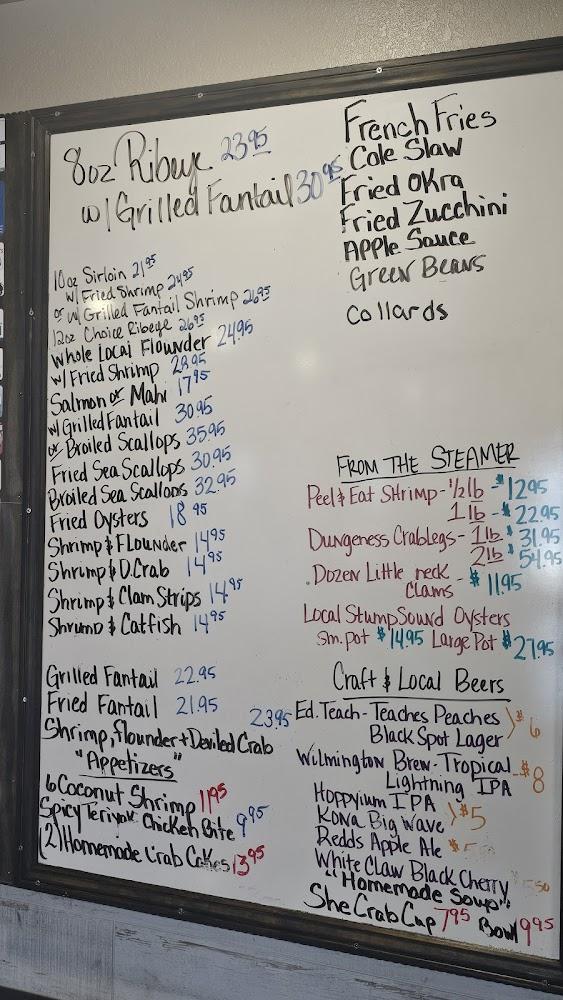 8oz Ribeye 23.95
w/ Grilled Fantail 30.95
10oz Sirloin 21.95
w/ Fried Shrimp 24.95
or w/ Grilled Fantail Shrimp 26.95
12oz Choice Ribeye 26.95
Whole Local Flounder 24.95
w/ Fried Shrimp 28.95
Salmon or Mahi 17.95
w/ Grilled Fantail 30.95
or Broiled Scallops 35.95
Fried Sea Scallops 30.95
Broiled Sea Scallops 32.95
Fried Oysters 18.95
Shrimp & Flounder 14.95
Shrimp & D.Crab 14.95
Shrimp & Clam Strips 14.95
Shrimp & Catfish 14.95
Grilled Fantail 22.95
Fried Fantail 21.95
23.95
Shrimp, flounder + Deviled Crab
"Appetizers"
6 Coconut Shrimp 11.95
Spicy Teriyaki Chicken Bite 9.95
(2) Homemade Crab Cakes 13.95
French Fries
Cole Slaw
Fried Okra
Fried Zucchini
Apple Sauce
Green Beans
Collards
From The Steamer
Peel & Eat Shrimp - 1/2 lb - $12.95
1 lb - $22.95
Dungeness Crab Legs - 1 lb $31.95
2 lb $54.95
Dozen Little neck
Clams - $11.95
Local Stump Sound Oysters
Sm. pot $14.95 Large Pot $27.95
Craft & Local Beers
Ed. Teach - Teaches Peaches
Black Spot Lager > $6
Wilmington Brew - Tropical
Lightning IPA - $8
Hoppyium IPA
Kona Big Wave > $5
Redds Apple Ale
White Claw Black Cherry
"Homemade Soup"
She Crab Cup 7.95 Bowl 9.95